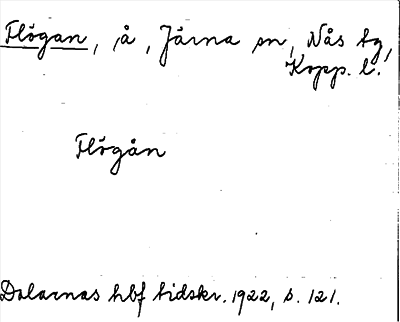 Flögan, å, Järna sn, Nås tg,
Kopp. l.
Flögån
Dalarnas hbf tidskr. 1922, s. 121.